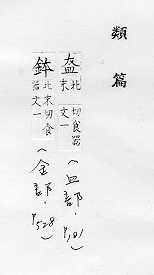 類篇
盋 北末 切食器 文一 (皿部·P181)
鉢 北末切食 器文一 (金部·P528)